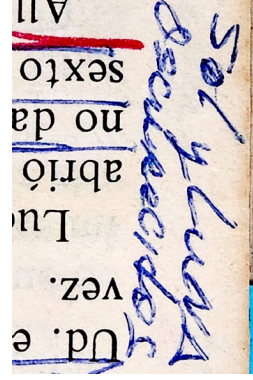 Ud. e
vez.
Luc
abrió
no da
sexto
All
Sol y Luna
oscurecidos